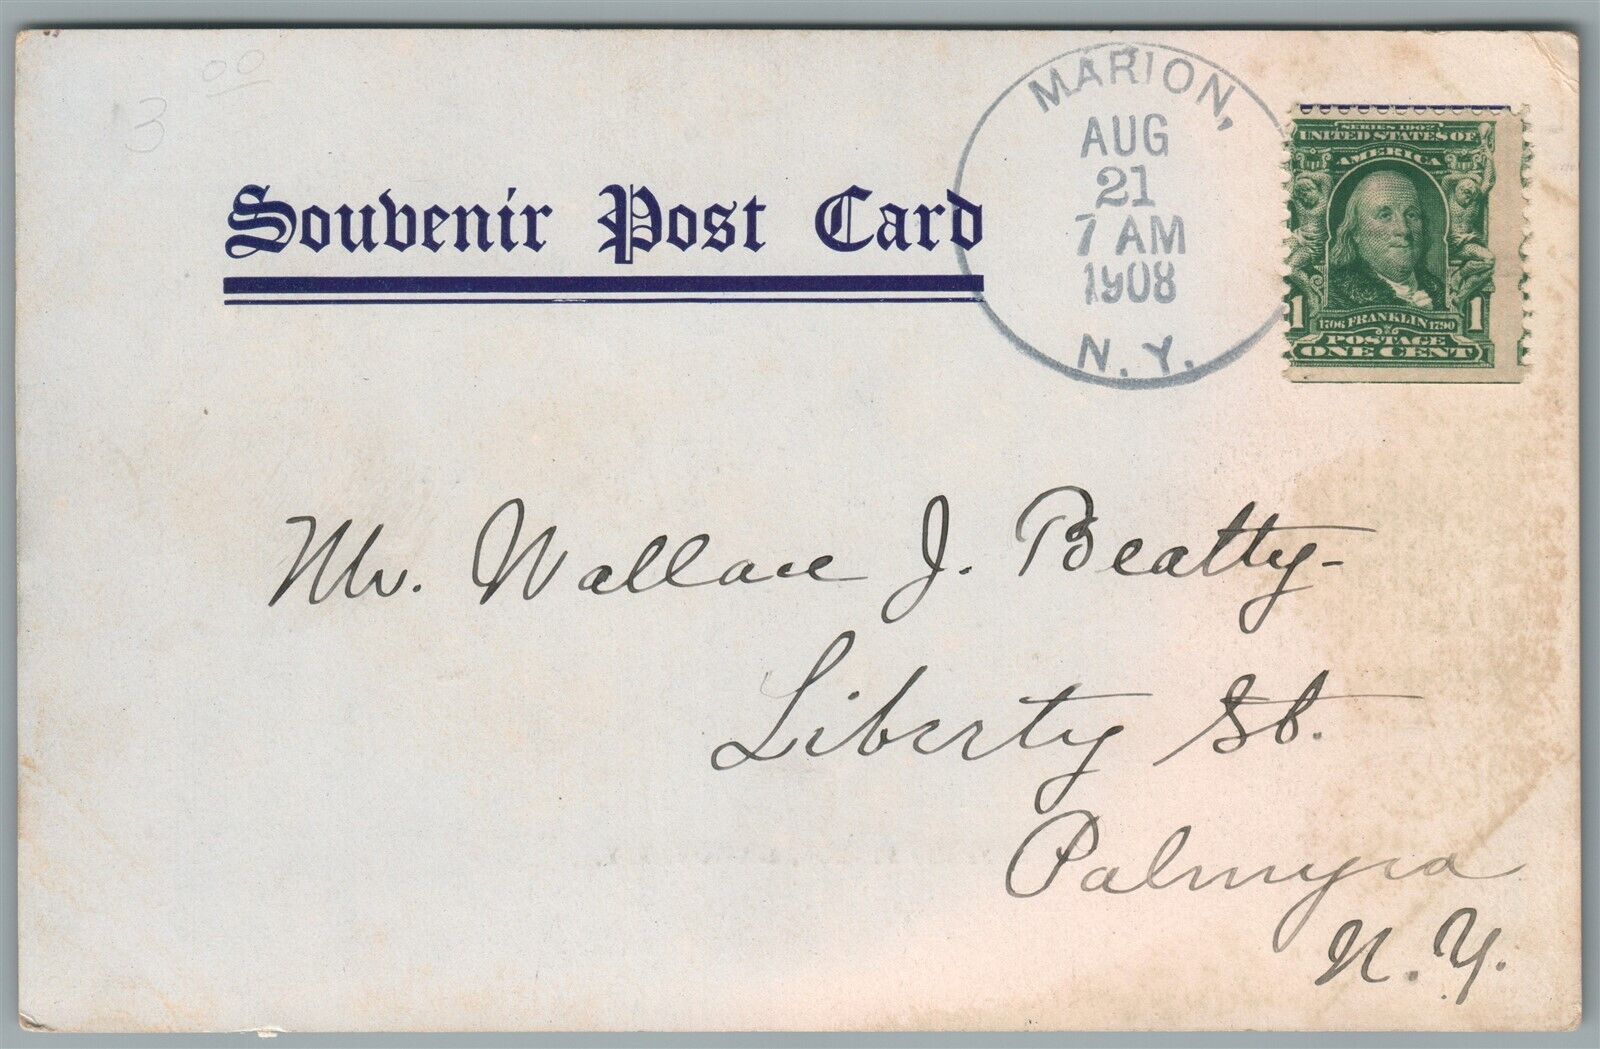 3 00
Souvenir Post Card
MARION,
AUG
21
7 AM
1908
N.Y.
SERIES 1902
UNITED STATES OF
AMERICA
1 1706 FRANKLIN 1790 1
POSTAGE
ONE CENT
Mr. Wallace J. Beatty
Liberty St.
Palmyra
N.Y.